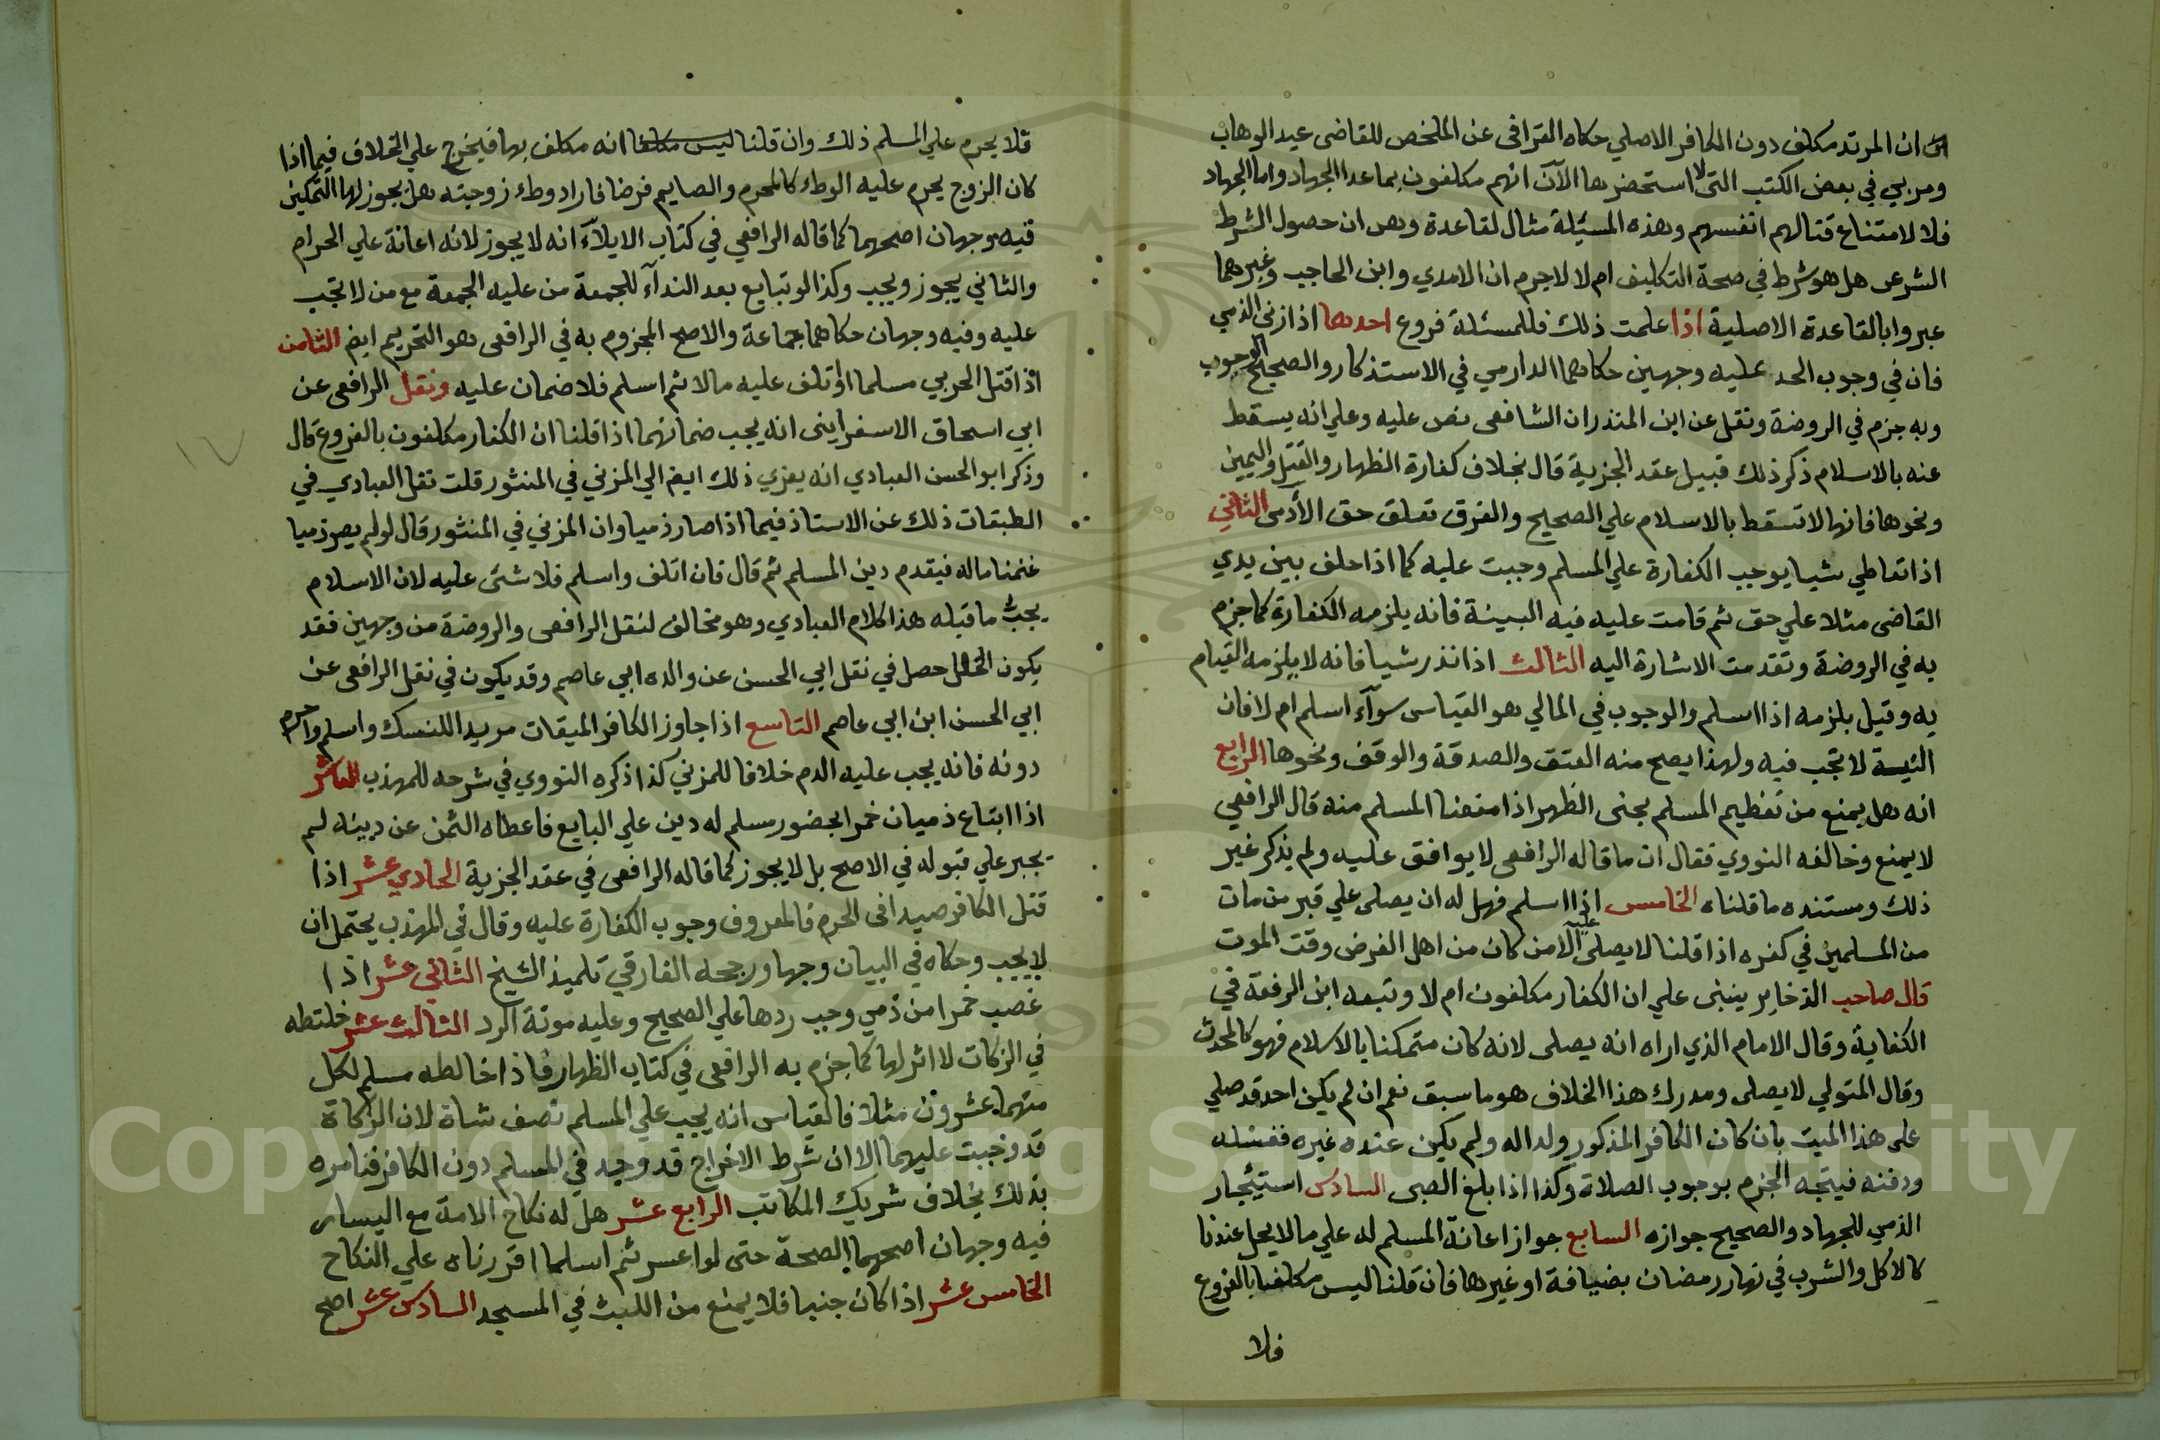 ان المرتد مكلف دون الكافر الاصلي حكاه القرافى عن الملخص للقاضى عبد الوهاب
ومر بي في بعض الكتب التى لا استحضرها الآن انهم مكلفون بما عدا الجهاد واما الجهاد
فلا لامتناع قتالهم انفسهم وهذه المسئلة مثال لقاعدة وهى ان حصول الشرط
الشرعى هل هو شرط في صحة التكليف ام لا لاجرم ان الامدي وابن الحاجب وغيرهما
عبروا بالقاعدة الاصلية اذا علمت ذلك فللمسئلة فروع احدها اذا زنى الذمي
فان في وجوب الحد عليه وجهين حكاهما الدارمي في الاستذكار والصحيح الوجوب
وبه جزم في الروضة ونقل عن ابن المنذر ان الشافعى نص عليه وعلي انه يسقط
عنه بالاسلام ذكر ذلك قبيل عقد الجزية قال بخلاف كفارة الظهار والقتل واليمين
ونحوها فانها لا تسقط بالاسلام علي الصحيح والفرق تعلق حق الآدمى الثاني
اذا تعاطي شيا يوجب الكفارة علي المسلم وجبت عليه كما اذا حلف بين يدي
القاضى مثلا علي حق ثم قامت عليه فيه البينة فانه يلزمه الكفارة كما جزم
به في الروضة وتقدمت الاشارة اليه الثالث اذا نذر شيا فانه لا يلزمه القيام
به وقيل يلزمه اذا اسلم والوجوب في المالي هو القياس سوآء اسلم ام لا فان
النية لا تجب فيه ولهذا يصح منه العتق والصدقة والوقف ونحوها الرابع
انه هل يمنع من تعظيم المسلم بحنى الظهر اذا منعنا المسلم منه قال الرافعي
لا يمنع وخالفه النووي فقال ان ما قاله الرافعى لا يوافق عليه ولم يذكر غير
ذلك ومستنده ما قلناه الخامس اذا اسلم فهل له ان يصلى علي قبر من مات
من المسلمين في كفره اذا قلنا لا يصلى عليه الا من كان من اهل الفرض وقت الموت
قال صاحب الذخاير ينبنى علي ان الكفار مكلفون ام لا وتبعه ابن الرفعة في
الكفاية وقال الامام الذي اراه انه يصلى لانه كان متمكنا بالاسلام فهو كالمحدث
وقال المتولي لا يصلى ومدرك هذا الخلاف هو ما سبق نعم ان لم يكن احد قد صلي
على هذا الميت بان كان الكافر المذكور ولدا له ولم يكن عنده غيره فغسله
ودفنه فيتجه الجزم بوجوب الصلاة وكذا اذا بلغ الصبى السادس استيجار
الذمي للجهاد والصحيح جوازه السابع جواز اعانة المسلم له علي ما لا يحل عندنا
كالاكل والشرب في نهار رمضان بضيافة او غيرها فان قلنا ليس مكلفا بالفروع
فلا
فلا يحرم علي المسلم ذلك وان قلنا ليس مكلفا انه مكلف بها فيخرج علي الخلاف فيما اذا
كان الزوج يحرم عليه الوطء كالمحرم والصايم فرضا فاراد وطء زوجته هل يجوز لها التمكين
فيه وجهان اصحهما كما قاله الرافعي في كتاب الايلآء انه لا يجوز لانه اعانة علي الحرام
والثاني يجوز ويجب وكذا لو تبايع بعد الندآء للجمعة من عليه الجمعة مع من لا تجب
عليه وفيه وجهان حكاهما جماعة والاصح المجزوم به في الرافعى هو التحريم ايض الثامن
اذا قتل الحربي مسلما او تلف عليه مالا ثم اسلم فلا ضمان عليه ونقل الرافعى عن
ابي اسحاق الاسفراينى انه يجب ضمانهما اذا قلنا ان الكفار مكلفون بالفروع قال
وذكر ابو الحسن العبادي انه يعزي ذلك ايض الي المزني في المنثور قلت نقل العبادي في
الطبقات ذلك عن الاستاذ فيما اذا صار ذميا وان المزني في المنثور قال لو لم يصر ذميا
غنمنا ماله فيقدم دين المسلم ثم قال فان اتلف واسلم فلا شئ عليه لان الاسلام
يجب ما قبله هذا كلام العبادي وهو مخالف لنقل الرافعى والروضة من وجهين فقد
يكون الخلل حصل في نقل ابي الحسن عن والده ابي عاصم وقد يكون في نقل الرافعى عن
ابي الحسن ابن ابي عاصم التاسع اذا جاوز الكافر الميقات مريدا للنسك واسلم واحرم
دونه فانه يجب عليه الدم خلافا للمزني كذا ذكره النووي في شرحه للمهذب العاشر
اذا ابتاع ذميان خمرا بحضور مسلم له دين علي البايع فاعطاه الثمن عن دينه لم
يجبر علي قبوله في الاصح بل لا يجوز كما قاله الرافعى في عقد الجزية الحادي عشر اذا
قتل الكافر صيدا فى الحرم فالمعروف وجوب الكفارة عليه وقال في المهذب يحتمل ان
لا يجب وحكاه في البيان وجها ورجحه الفارقي تلميذ الشيخ الثاني عشر اذا
غصب خمرا من ذمي وجب ردها علي الصحيح وعليه مونة الرد الثالث عشر خلتطه
في الزكات لا اثر لها كما جزم به الرافعى في كتاب الظهار فاذا خالطه مسلم لكل
منهما عشرون مثلا فالقياس انه يجب علي المسلم نصف شاة لان الزكاة
قد وجبت عليهما الا ان شرط الاخراج قد وجد في المسلم دون الكافر فنامره
بذلك بخلاف شريك المكاتب الرابع عشر هل له نكاح الامة مع اليسار
فيه وجهان اصحهما الصحة حتى لو اعسر ثم اسلما اقررناه علي النكاح
الخامس عشر اذا كان جنبا فلا يمنع من اللبث في المسجد السادس عشر اصح
١٧
Copyright © King Saud University